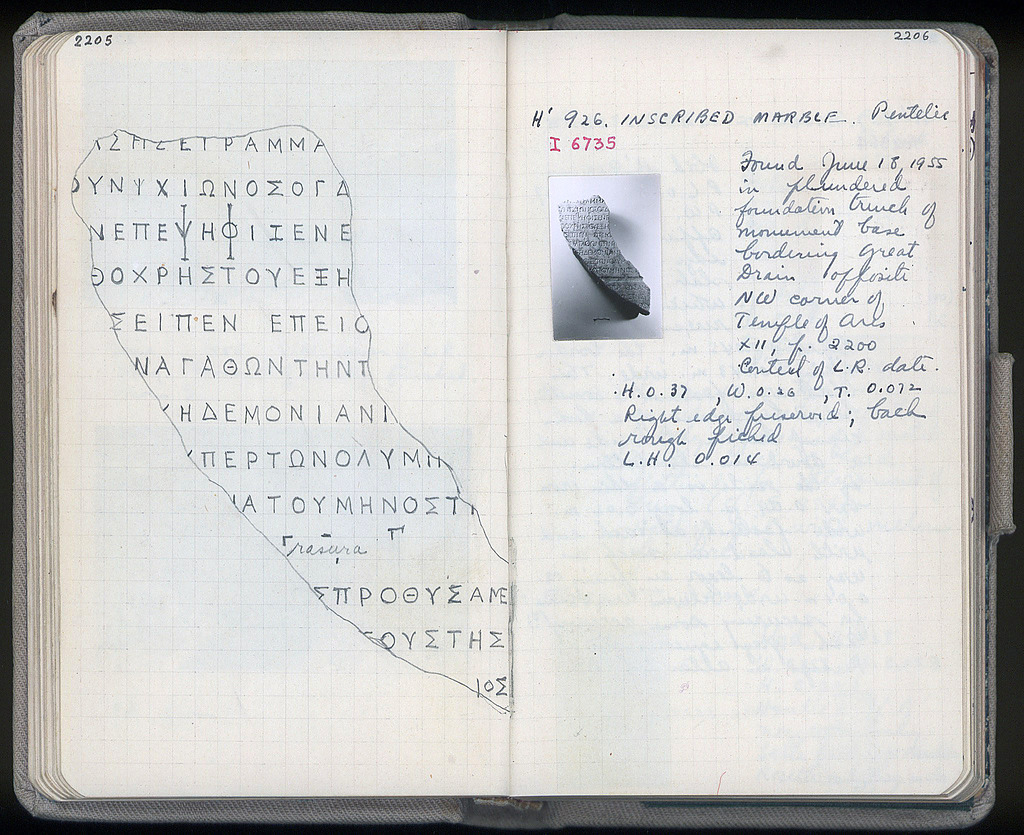 2205
ΗΣΕΓΡΑΜΜΑ
ΥΝΨΧΙΩΝΟΣΟΓΔ
ΝΕΠΕΨΗΦΙΙΕΝΕ
ΟΧΡΗΣΤΟΥΕΞΗ
ΣΕΙΠΕΝ ΕΠΕΙ
ΝΑΓΑΘΩΝΤΗΝΤ
ΗΔΕΜΟΝΙΑΝΙ
ΠΕΡΤΩΝΟΛΥΜΠ
ΑΤΟΥΜΗΝΟΣΤ
rasura
ΣΠΡΟΘΥΣΑΜΕ
ΟΥΣΤΗΣ
ΙΟΣ
2206
H' 926. INSCRIBED MARBLE. Pentelic
I 6735
Found June 18, 1955
in plundered
foundation trench of
monument base
bordering Great
Drain opposite
NW corner of
Temple of Ares
XII, p. 2200
Context of L.R. date.
H. 0.37, W. 0.26, T. 0.072
Right edge preserved; back
rough picked
L.H. 0.014